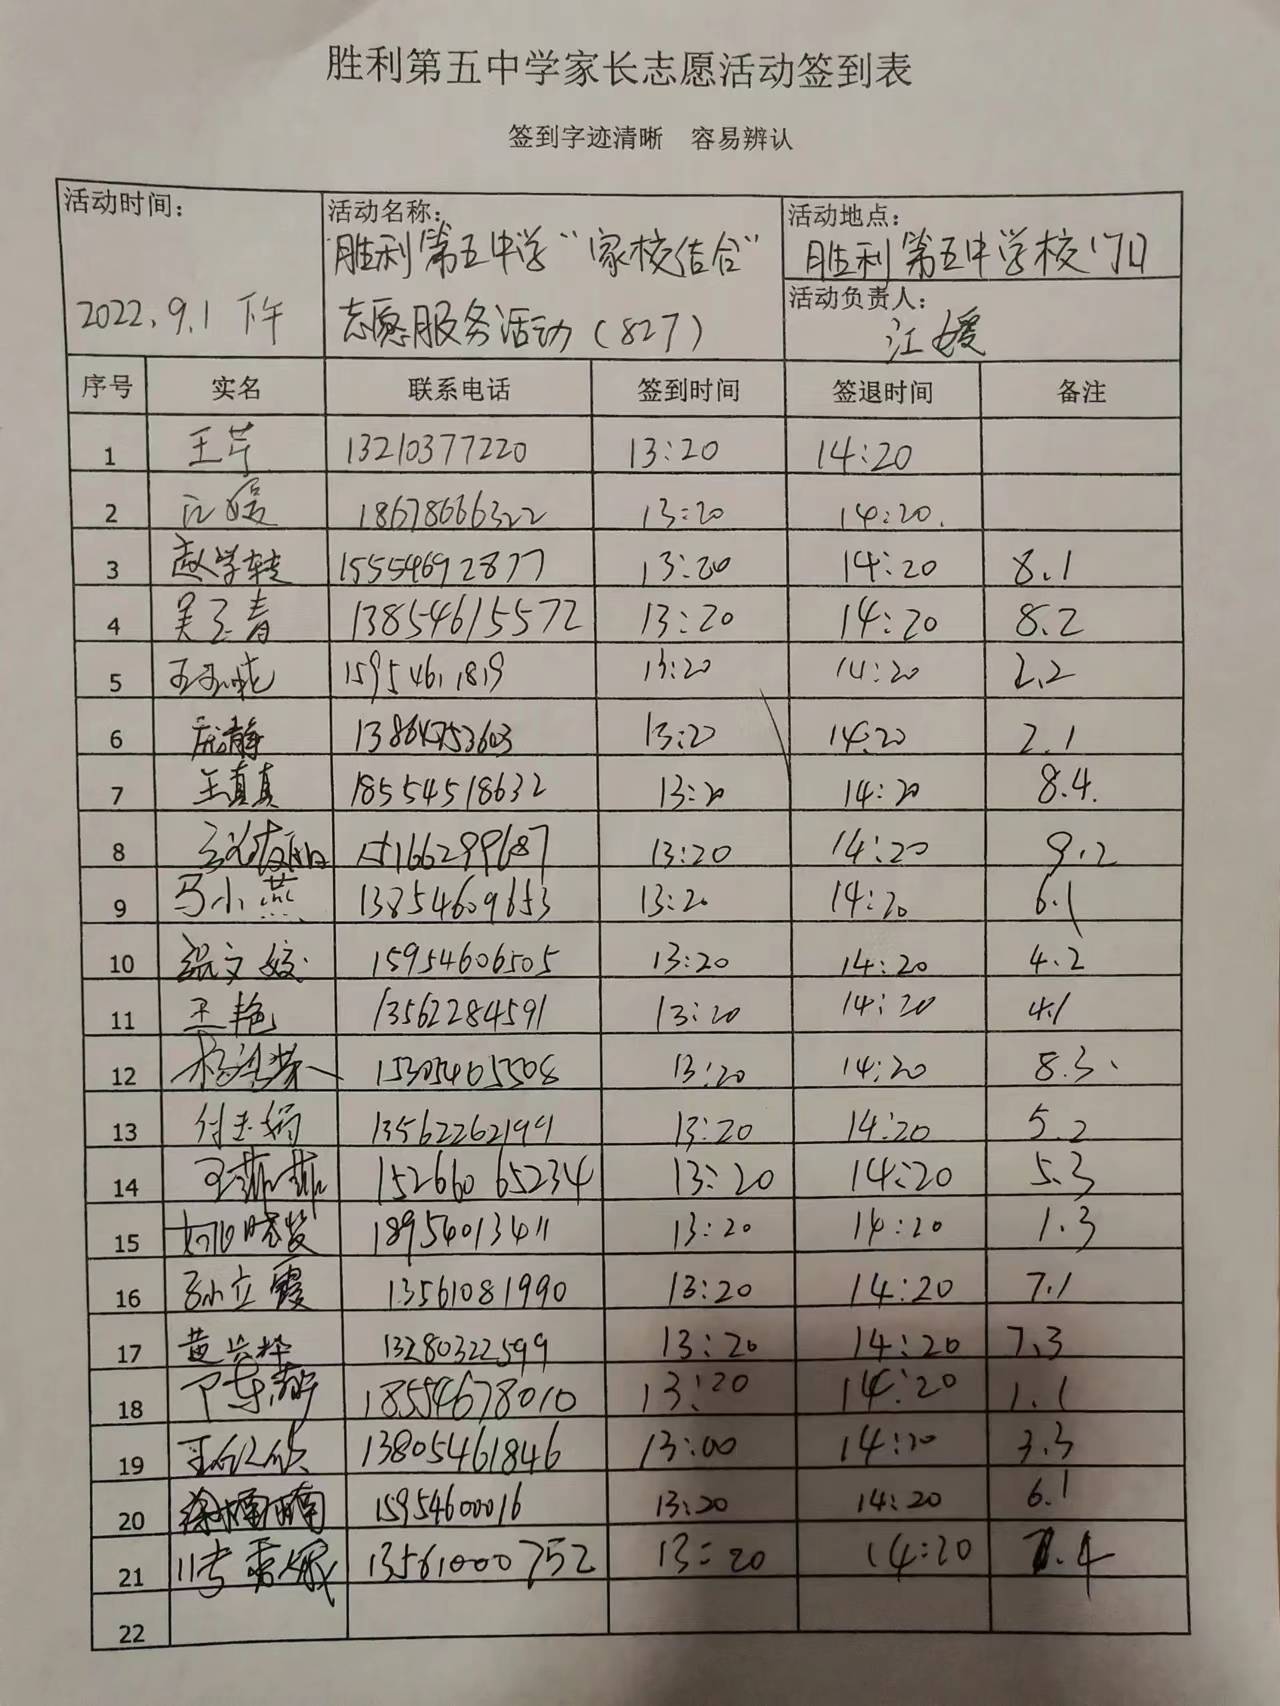 胜利第五中学家长志愿活动签到表
签到字迹清晰 容易辨认
活动时间：
2022.9.1 下午
活动名称：
胜利第五中学“家校结合”
志愿服务活动（827）
活动地点：
胜利第五中学校门口
活动负责人：
江媛
序号 实名 联系电话 签到时间 签退时间 备注
1 王芹 13210377220 13:20 14:20
2 江媛 18678666322 13:20 14:20.
3 赵学转 15554692877 13:20 14:20 8.1
4 吴玉青 13854615572 13:20 14:20 8.2
5 15954611819 13:20 14:20 2.2
6 庞静 13864753603 13:20 14:20 2.1
7 王真真 18554518632 13:20 14:20 8.4.
8 15166299687 13:20 14:20 9.2
9 马小燕 13854609653 13:20 14:20 6.1
10 温文姣 15954606505 13:20 14:20 4.2
11 王艳 13562284591 13:20 14:20 4.1
12 15305405508 13:20 14:20 8.3
13 付玉娟 13562262199 13:20 14:20 5.2
14 王菲菲 15266065234 13:20 14:20 5.3
15 18954013411 13:20 14:20 1.3
16 孙立霞 13561081990 13:20 14:20 7.1
17 黄兴华 13280322599 13:20 14:20 7.3
18 18554678010 13:20 14:20 1.1
19 13805461846 13:00 14:20 3.3
20 徐楠楠 15954600016 13:20 14:20 6.1
21 13561000752 13:20 14:20 7.4
22